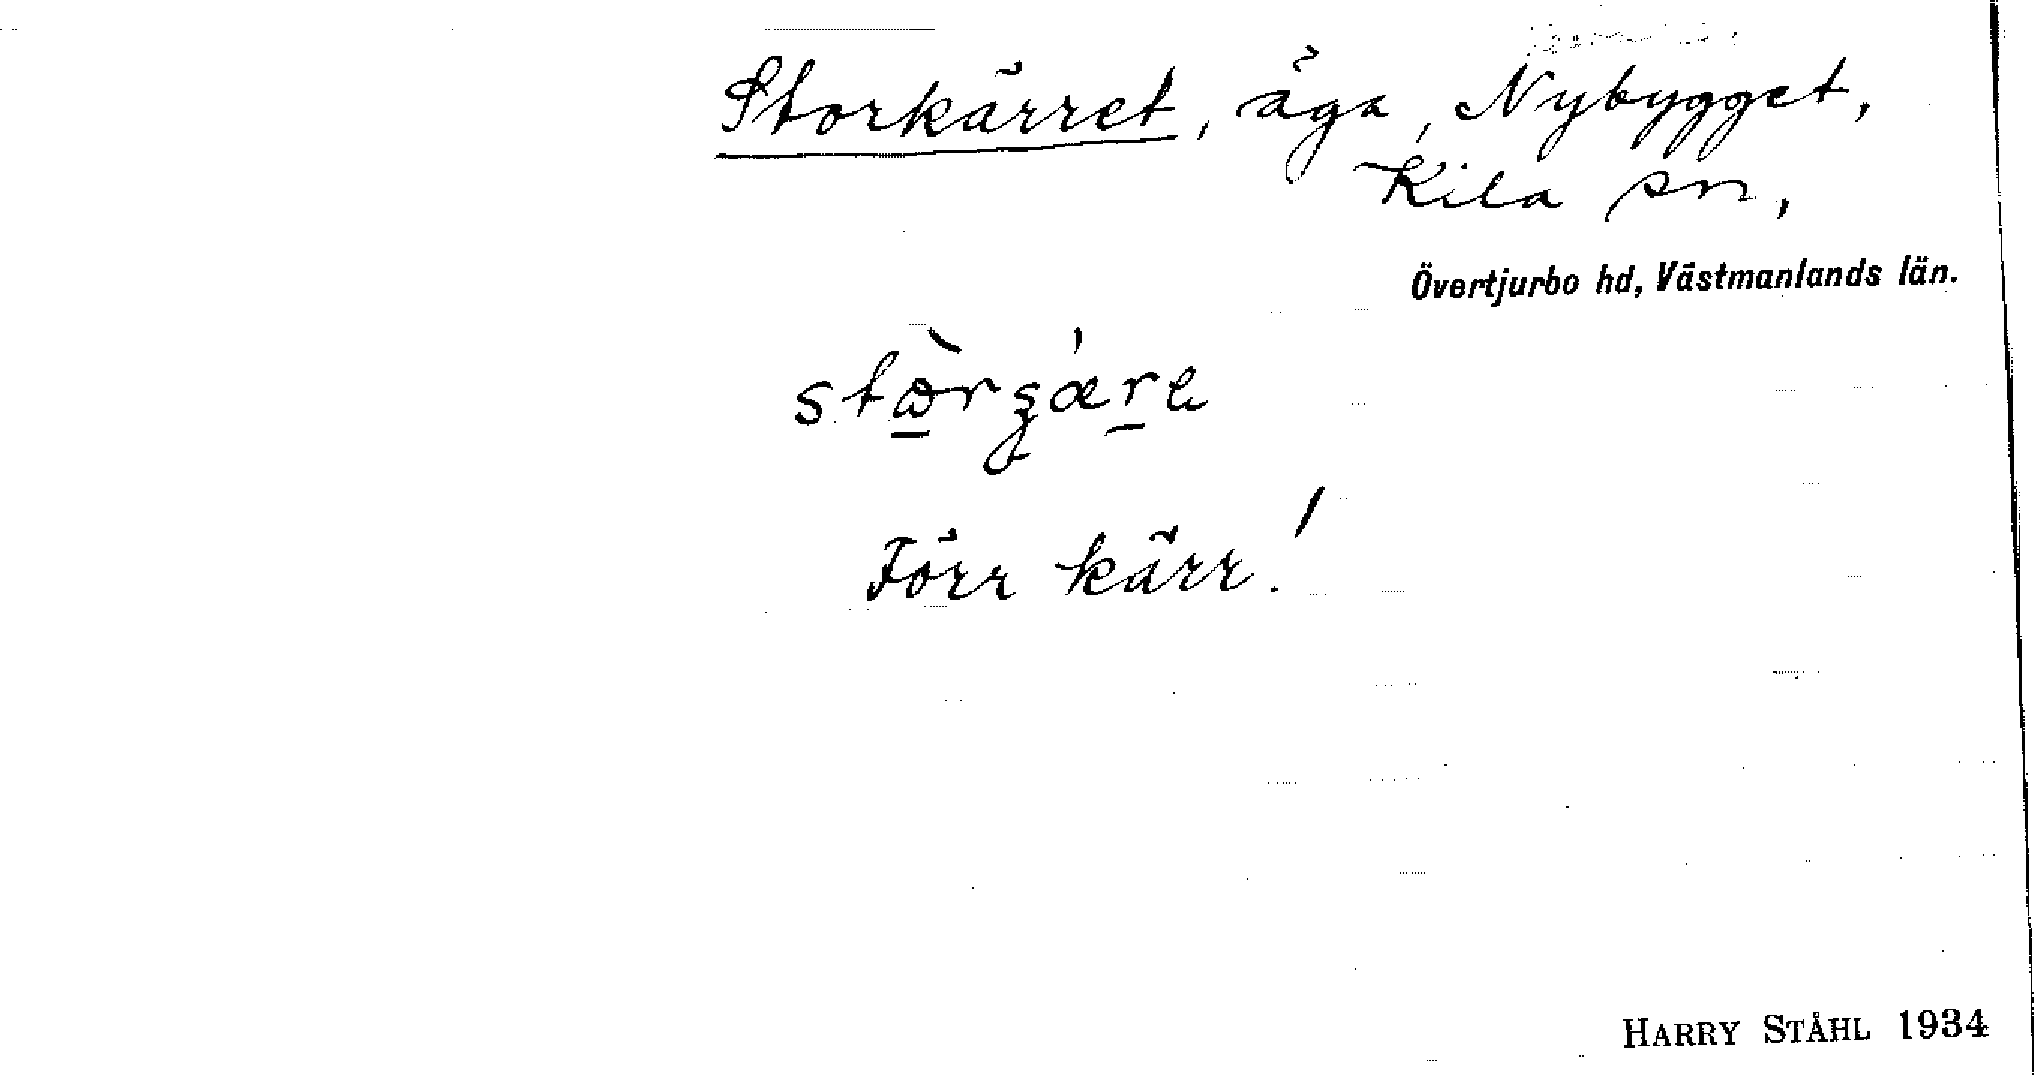 Storkärret, äga, Nybygget,
Kila sn,
Övertjurbo hd, Västmanlands län.
Förr kärr!
HARRY STÅHL 1934